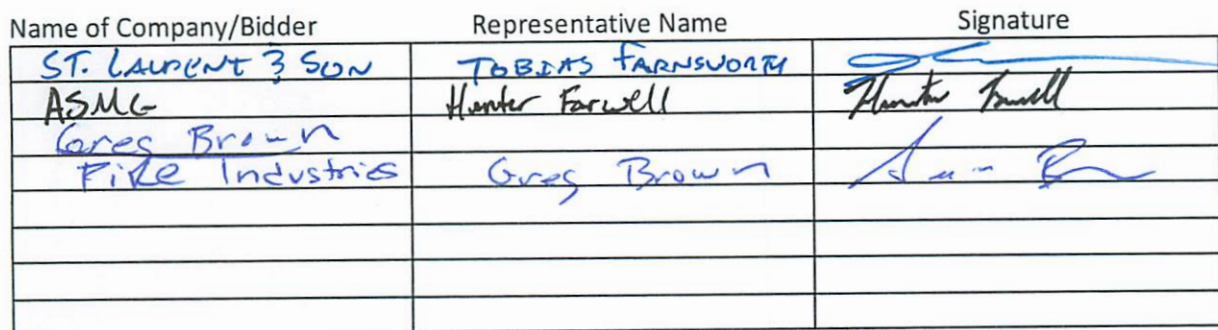 Name of Company/Bidder Representative Name Signature
ST. LAURENT & SON TOBIAS FARNSWORTH
ASMG Hunter Farwell Hunter Farwell
Greg Brown
Pike Industries Greg Brown